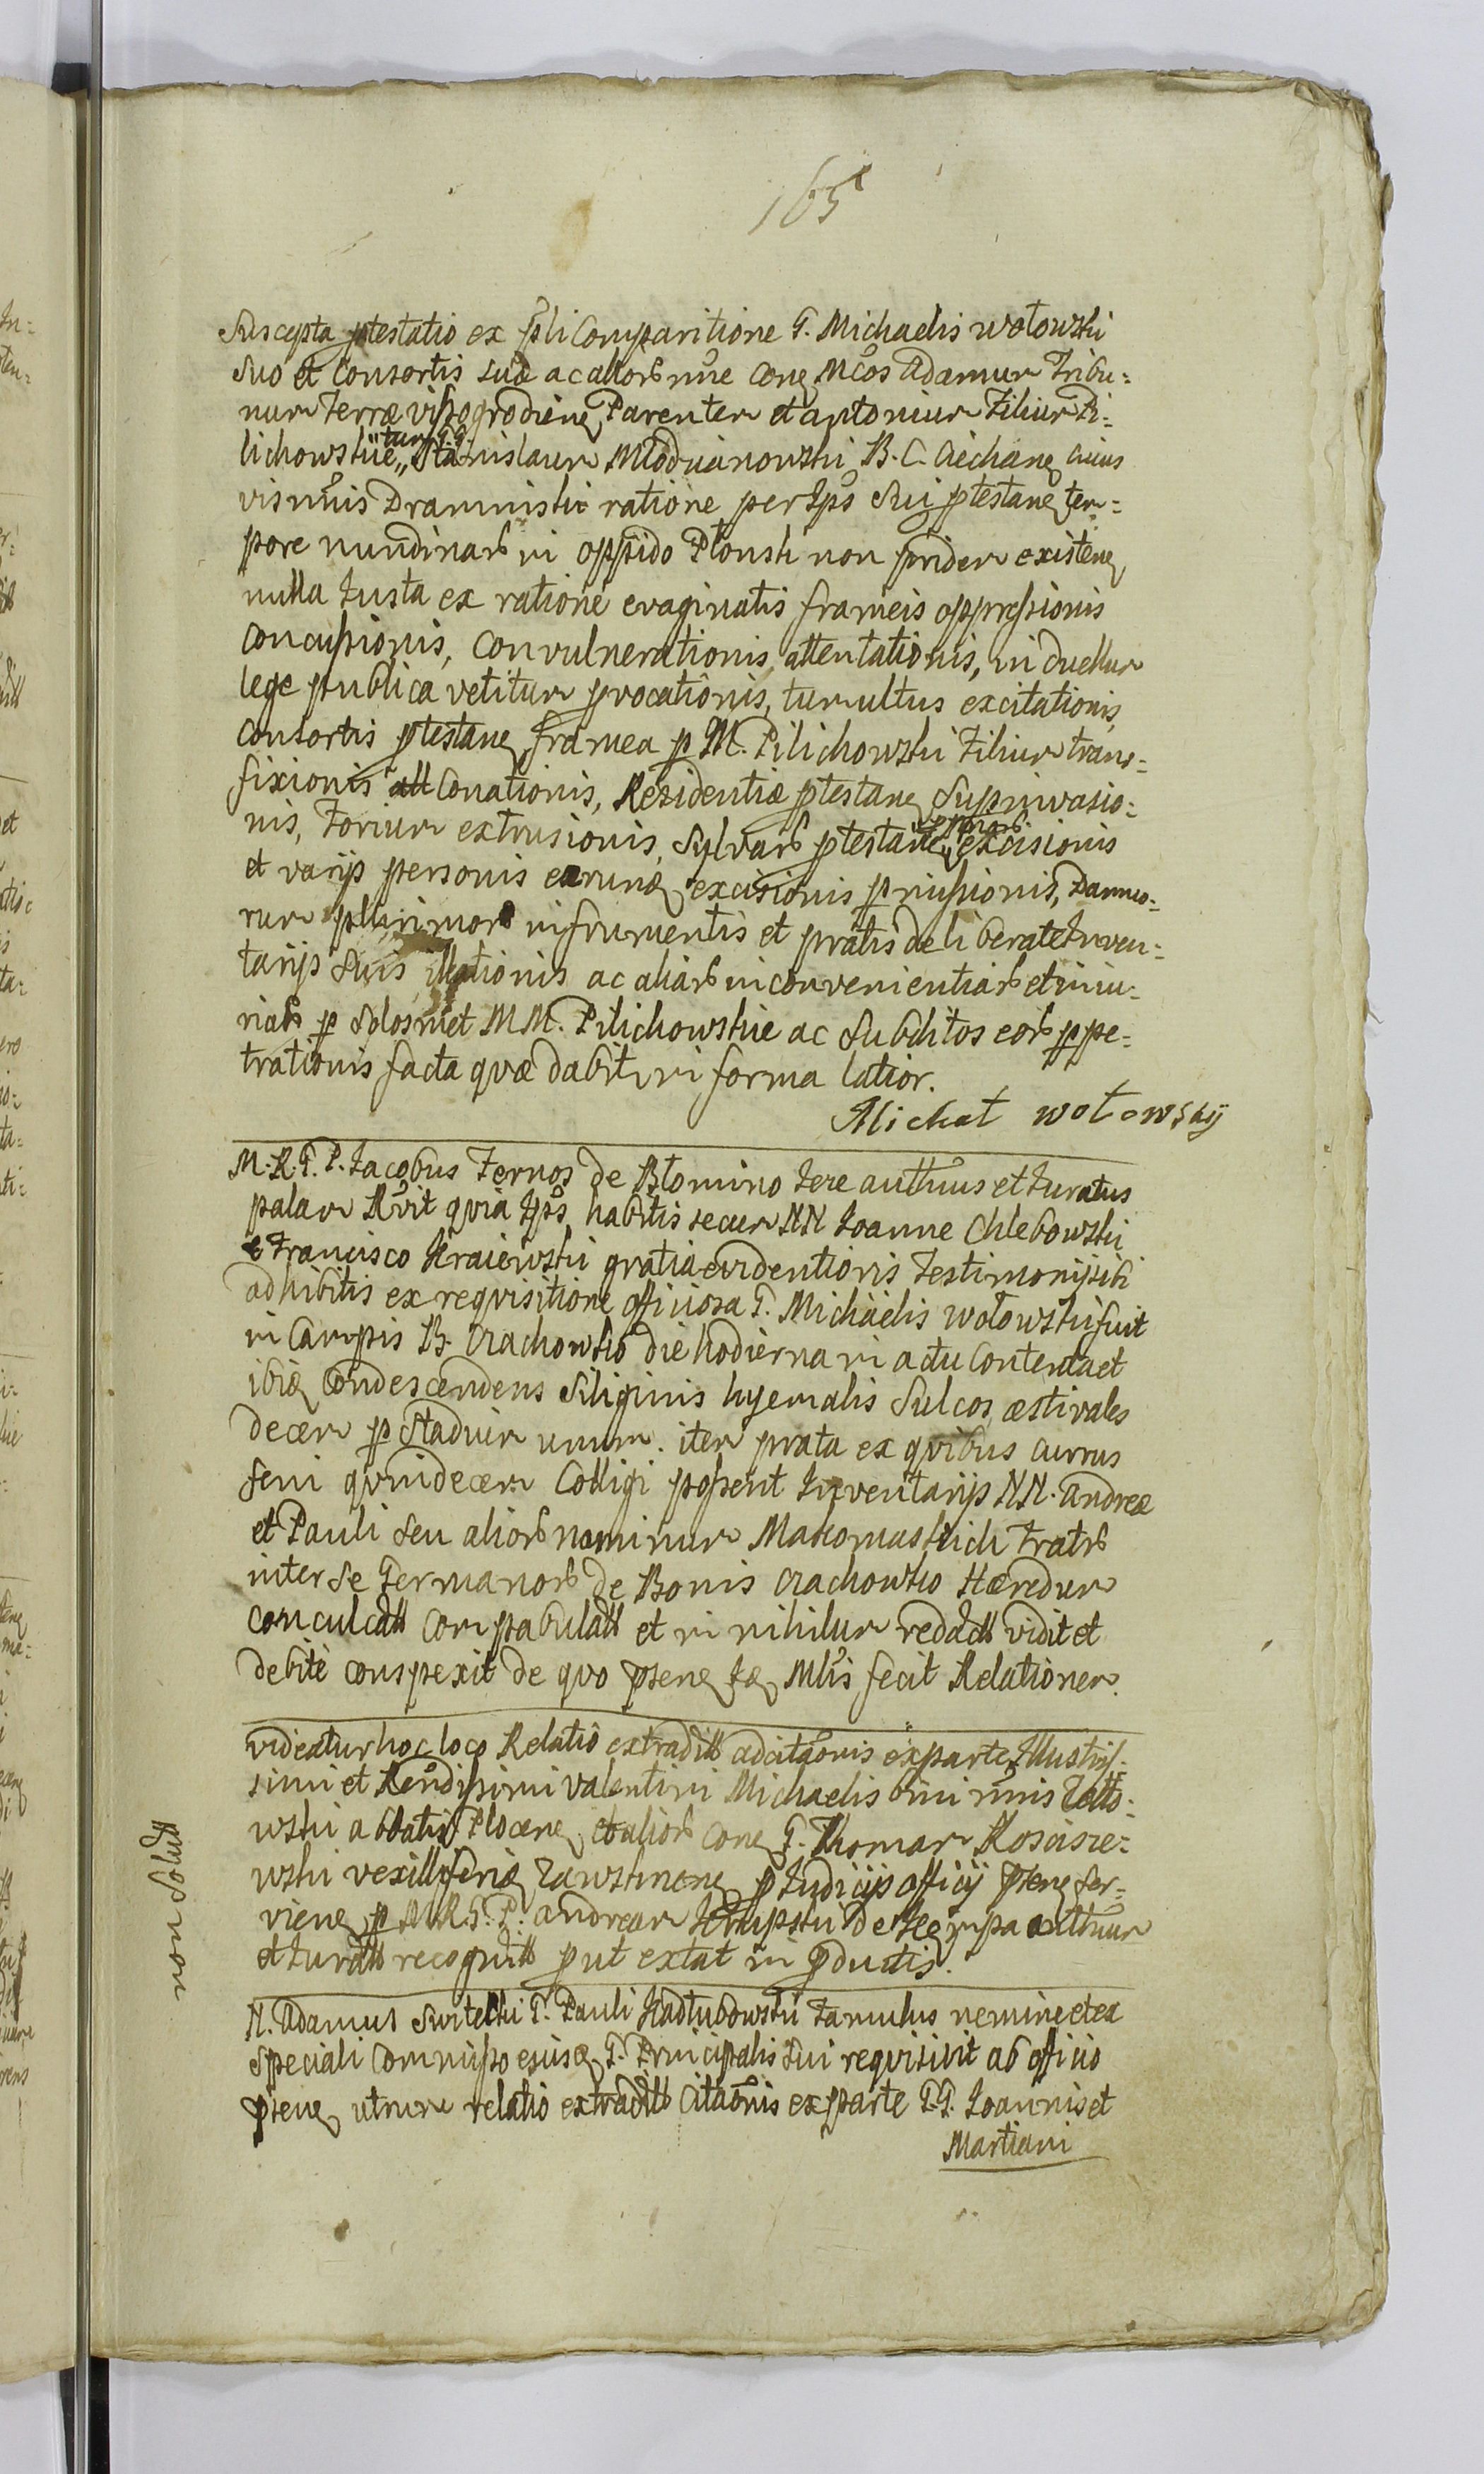 165
Suscepta ptestatio ex psli Comparitione G. Michaelis Wołowski
Suo et Consortis suæ ac aliorb nõie Conq Mcos Adamum Tribu=
num Terræ Vissogrodienq Parentem et Antonium Filium Pi=
lichowskie „tum G.G. Stanislaum Młodzianowski B. C. Ciechanq cuius
vis nuis Dramnistii ratione per Ipš Sui ptestanq tem=
pore nundinarb in oppido Płonsk non pridem existenq
nulla Iusta ex ratione evaginatis frameis oppressionis
Concussionis, Convulnerationis, attentationis, in duellum
lege publica vetitum provocationis, tumultus excitationis,
Consortis ptestanq framea p M. Pilichowski Filium trans=
fixionis Conationis, Residentiæ ptestanq Superinvasio=
nis, Forium extrusionis, Sylvarb ptestanq excisionis
et varijs personis earunq excisionis pmissionis, Damno=
rum plurimorb in frumentis et pratis deliberate Inven=
tarijs suis illationis ac aliarb inconvenientiarb et iniu=
riarb p Solosmet MM. Pilichowskie ac Subditos eorb ppe=
trationis facta quæ dabitr in forma latior.
Michał Wołowsky
M.R.G.P. Iacobus Fernos de Błomino Tere authnus et Iuratus
palam Rvit quia Ipš habitis secum NN Ioanne Chlebowski
et Francisco Kraiewski gratia evidentioris Testimonij sibi
adhibitis ex requisitione officiosa G. Michaelis Wołowski fuit
in Campis B. Crachowko die hodierna in actu Contenta et
ibiq Condescendens Siliginis hyemalis Sulcos æstivales
decem p Stadium unum. item prata ex quibus currus
feni quindecem Colligi possent Inventarijs NN. Andreæ
et Pauli seu aliorb nominum Makomaskich Fratrb
inter se Germanorb de Bonis Crachowko Hæredum
conculcatt compabulatt et in nihilum redactt vidit et
debite conspexit de quo psenq Iq Mlis fecit Relationem.
videatur hoc loco Relatio extraditt adcitaõnis ex parte Illustris=
simi et Rendissimi Valentini Michaelis bini nmis Zatto=
wski abbatis Płocenq et aliorb Conq G. Thomam Kosciste=
wski vexilliferiq Zawskrnenq p Iudicijs officij psenq ser=
vienq p M.R.G.P. Andream Krupski de Kempa authnum
et Iuratt recognitt put extat in pductis.
non solutt
N. Adamus Switelski G. Pauli Kadłubowski Famulus nomine et ex
speciali Commisso eiusq G. Principalis sui requisivit ab officio
psenq utrum relatio extraditt Citaõnis ex parte G.G. Ioannis et
Martiani